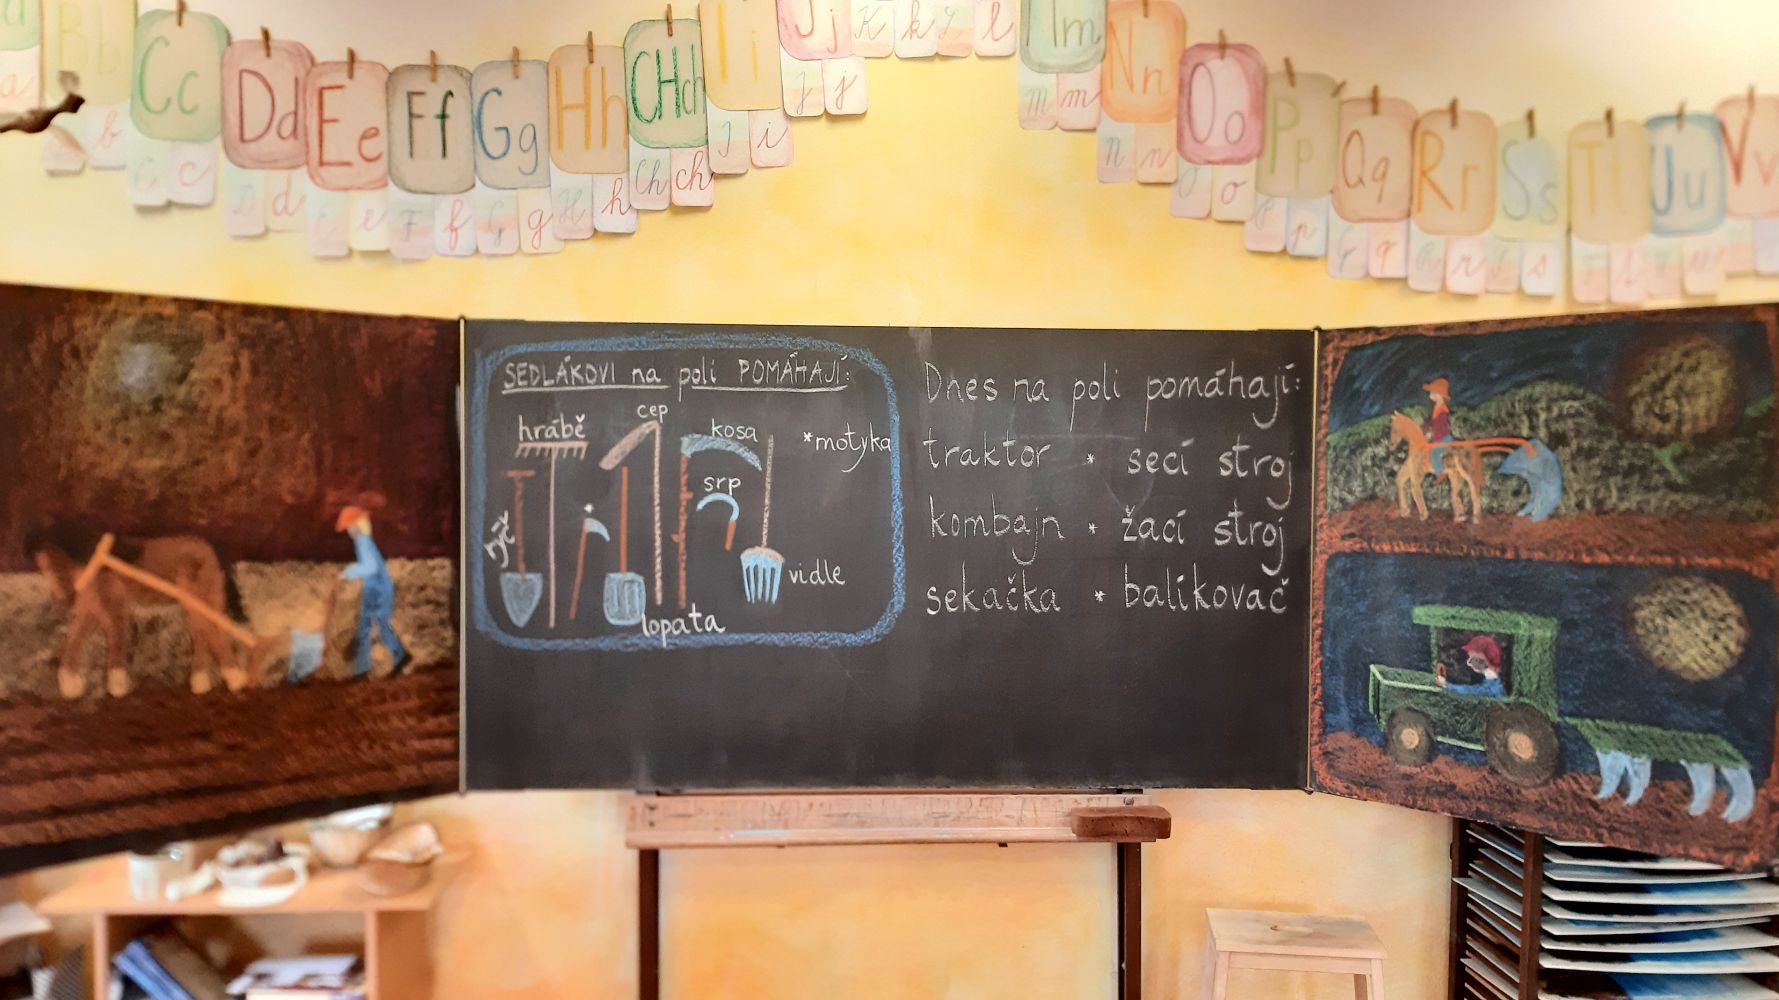 Bb
Cc
Dd
Ee
Ff
Gg
Hh
CHch
Ii
Jj
K k
L l
Mm
Nn
Oo
Pp
Qq
Rr
Ss
Tt
Uu
Vv
a
b
C c
D d
E e
F f
G g
H h
Ch ch
I i
J j
M m
N n
O o
P p
Q q
R r
S s
T t
U u
SEDLÁKOVI na poli POMÁHAJÍ:
hrábě
cep
kosa
*motyka
srp
rýč
vidle
lopata
Dnes na poli pomáhají:
traktor * secí stroj
kombajn * žací stroj
sekačka * balíkovač